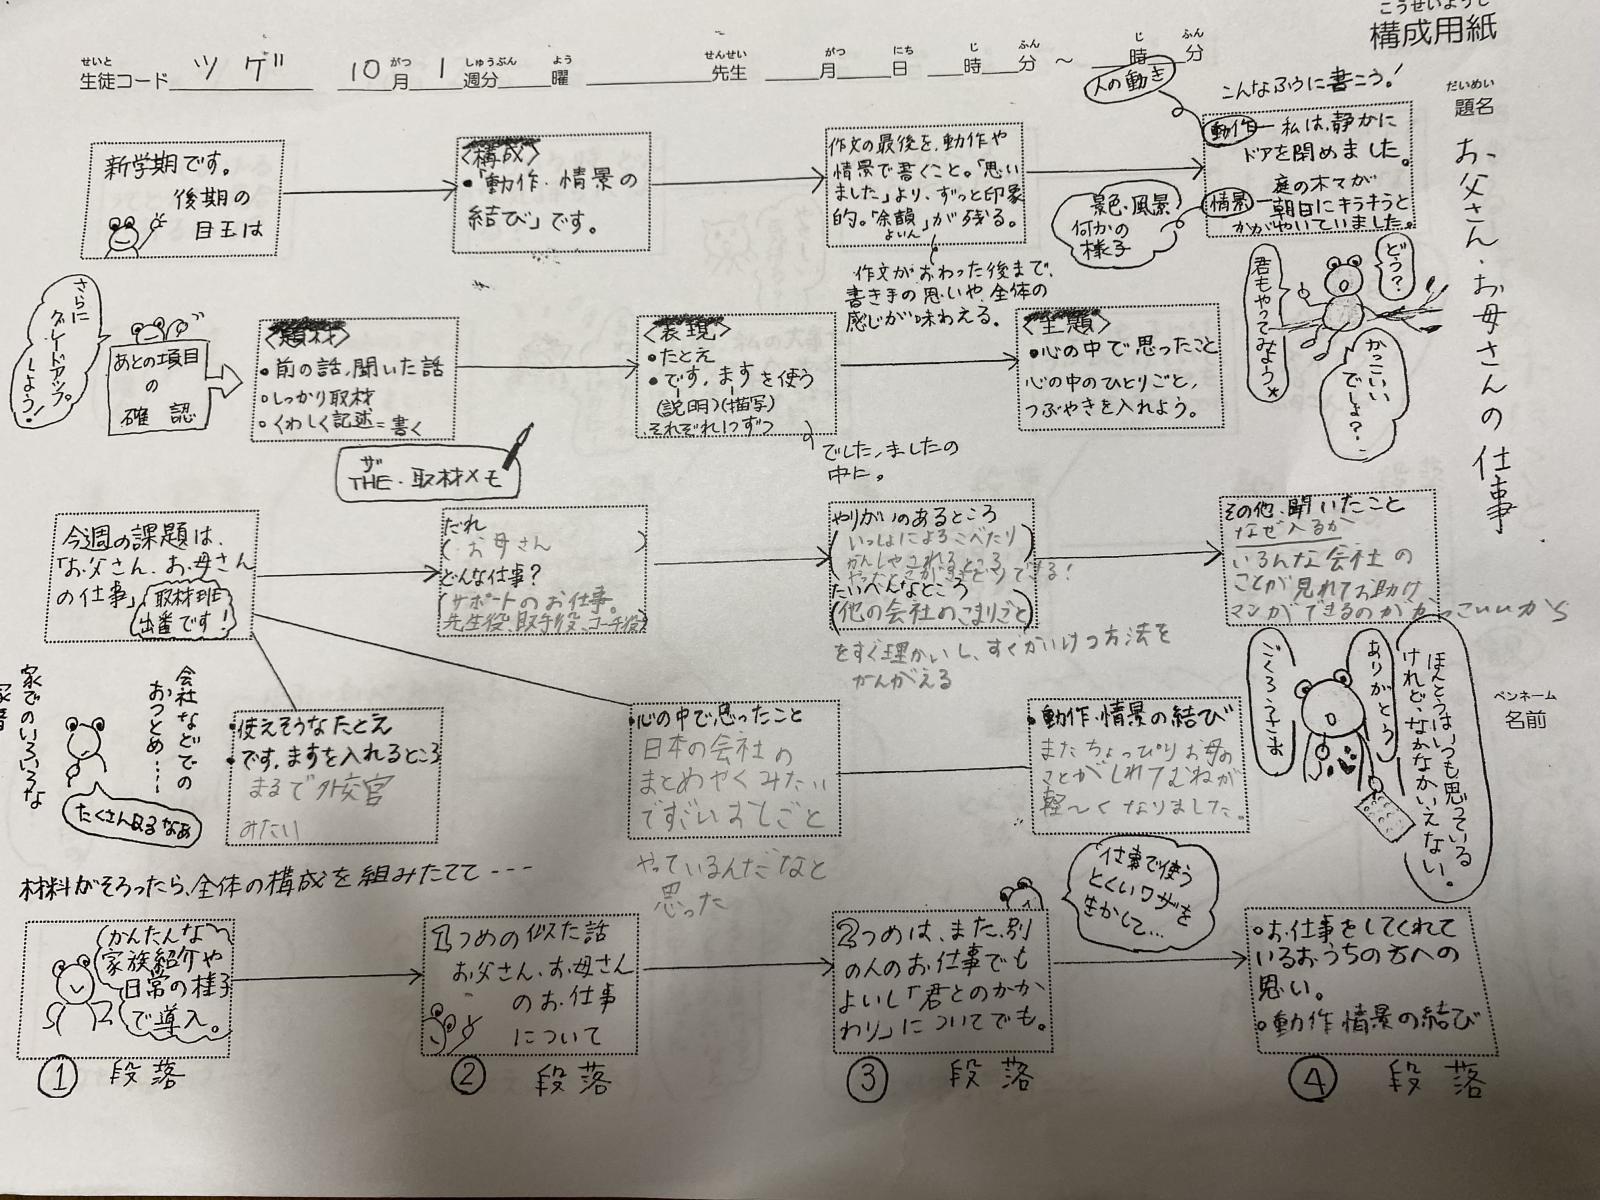 こうせいようし
構成用紙
せいと がつ しゅうぶん よう せんせい がつ にち じ ふん じ ふん
生徒コード ツゲ 10月1週分 曜 先生 月 日 時 分 ～ 時 分
だいめい
題名
お父さん・お母さんの仕事
ペンネーム
名前
新学期です。
後期の
目玉は
〈構成〉
・「動作・情景の
結び」です。
作文の最後を、動作や
情景で書くこと。「思い
ました」より、ずっと印象
的。「余韻」が残る。
よいん
作文がおわった後まで、
書き手の思いや、全体の
感じが味わえる。
人の動き
こんなふうに書こう!
動作―私は、静かに
ドアを閉めました。
情景―庭の木々が
朝日にキラキラと
かがやいていました。
景色・風景
何かの
様子
どう?
君もやってみよう
かっこいい
でしょ?
さらに
グレードアップ。
しよう!
あとの項目
の
確認
〈題材〉
・前の話、聞いた話
・しっかり取材
・くわしく記述=書く
ザ
THE・取材メモ
〈表現〉
・たとえ
・です、ますを使う
(説明)(描写)
それぞれ1つずつ
でした、ましたの
中に。
〈主題〉
・心の中で思ったこと
心の中のひとりごと、
つぶやきを入れよう。
今週の課題は、
「お父さん、お母さん
の仕事」
取材班
出番です!
だれ
(お母さん)
どんな仕事?
(サポートのお仕事。
先生役、取手役、コーチ役)
やりがいのあるところ
(いっしょによろこべたり
かんしゃされるところ
できる!
たいへんなところ
(他の会社のこまりごと)
をすぐ理かいし、すぐかいけつ方法を
かんがえる
その他、聞いたこと
なぜ入るか
いろんな会社の
ことが見れてお助け
マンができるのがかっこいいから
ほんとうはいつも思っている
けれど、なかなかいえない。
ありがとう
ごくろうさま
会社などでの
おつとめ……
家でのいろいろな
たくさんあるなぁ
・使えそうなたとえ
・です、ますを入れるところ
まるで外交官
みたい
・心の中で思ったこと
日本の会社の
まとめやくみたい
ですごいおしごと
やっているんだなと
思った
・動作・情景の結び
またちょっぴりお母の
ことがしれてむねが
軽〜くなりました。
材料がそろったら、全体の構成を組みたてて----
かんたんな
家族紹介や
日常の様子
で導入。
①段落
1つめの似た話
お父さん、お母さん
のお仕事
について
②段落
2つめは、また、別
の人のお仕事でも
よいし「君とのかか
わり」についてでも。
③段落
仕事で使う
とくいワザを
生かして…
・お仕事をしてくれて
いるおうちの方への
思い。
・動作・情景の結び
④段落